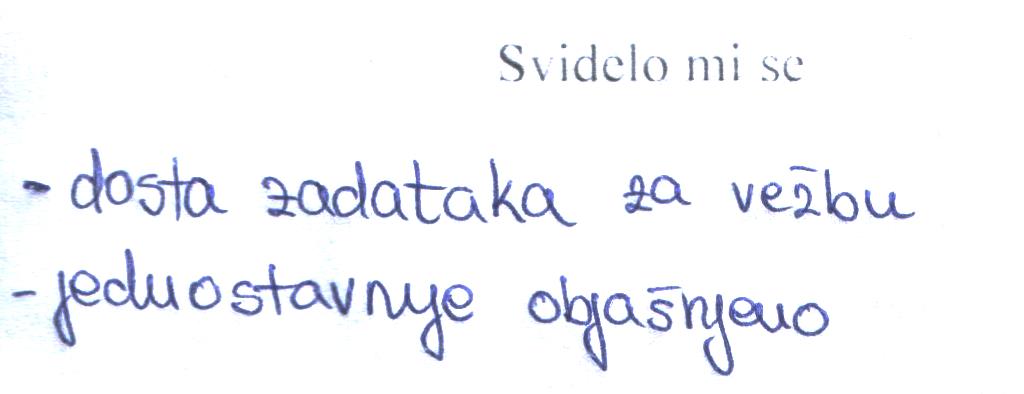 Svidelo mi se
- dosta zadataka za vežbu
- jednostavnije objašnjeno